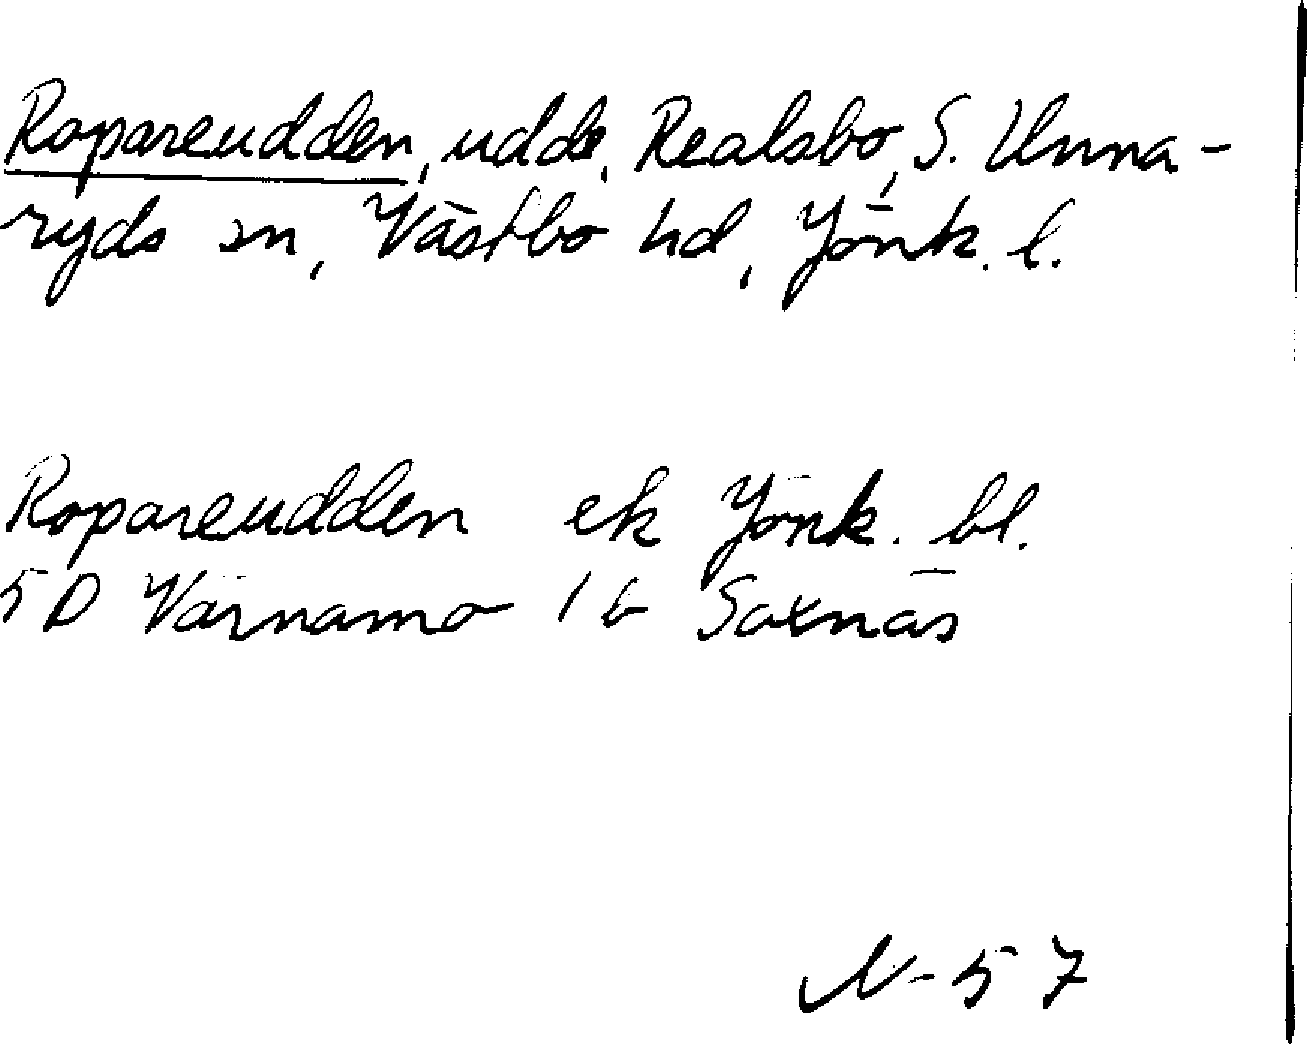 Ropareudden, udde, Realsbo, S. Unna-
ryds sn, Västbo hd, Jönk. l.
Ropareudden ek Jönk. bl.
5D Värnamo 1b Saxnäs
N-57